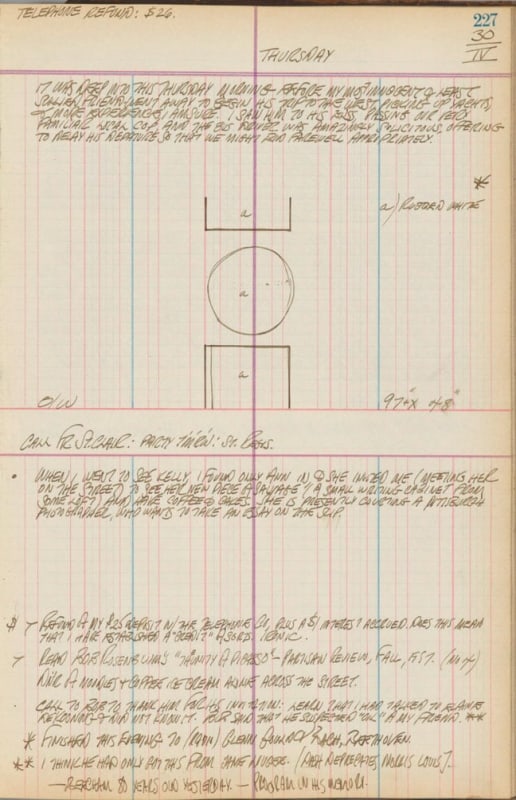 TELEPHONE REFUND: $26.
227
30
IV
THURSDAY
IT WAS DEEP INTO THIS THURSDAY MORNING BEFORE MY MOST INNOCENT & LEAST
FRIEND WENT AWAY TO BEGIN HIS TRIP TO THE WEST, PICKING UP YACHTS,
& MORE EXPERIENCE, I AM SURE. I SAW HIM TO HIS BUS, PASSING OUR VERY
FAMILIAR COP AND THE BUS DRIVER WAS AMAZINGLY SOLICITOUS, OFFERING
TO DELAY HIS DEPARTURE SO THAT WE MIGHT BID FAREWELL APPROPRIATELY.
*
a) WHITE
a
a
a
O/W
97" X 48"
CALL FR ST. CLAIR: PARTY ST. REGIS.
• WHEN I WENT TO SEE KELLY, I FOUND ONLY ANN IN & SHE INVITED ME (MEETING HER
ON THE STREET) TO SEE HER NEW PIECE OF SALVAGE (A SMALL WRITING CABINET FROM
SOME LOFT) AND HAVE COFFEE & CAKES. SHE IS PRESENTLY COURTING A PITTSBURGH
PHOTOGRAPHER, WHO WANTS TO TAKE AN ESSAY ON THE SLIP.
$ REFUND OF MY $25 DEPOSIT W/ THE TELEPHONE CO., PLUS A $1 INTEREST ACCRUED. DOES THIS MEAN
THAT I HAVE ESTABLISHED A "CREDIT" OF SORTS. IRONIC.
READ ROB ROSENBLUM'S "UNITY OF PICASSO" – PARTISAN REVIEW, FALL, '57.
DINE OF NOODLES & COFFEE ICE CREAM ALONE ACROSS THE STREET.
CALL TO BOB TO THANK HIM FOR HIS INVITATION: LEARN THAT I HAD TALKED TO
& DID NOT KNOW IT. BOB SAID THAT HE SUSPECTED OF MY FRIEND. **
* FINISHED THIS EVENING TO (RADIO) GLENN GOULD: BACH, BEETHOVEN.
** I THINK HE HAD ONLY GOT THIS FROM GAME (BOB DEPRECATES MORRIS LOUIS).
— BEECHAM 80 YEARS OLD YESTERDAY. — PROGRAM IN HIS